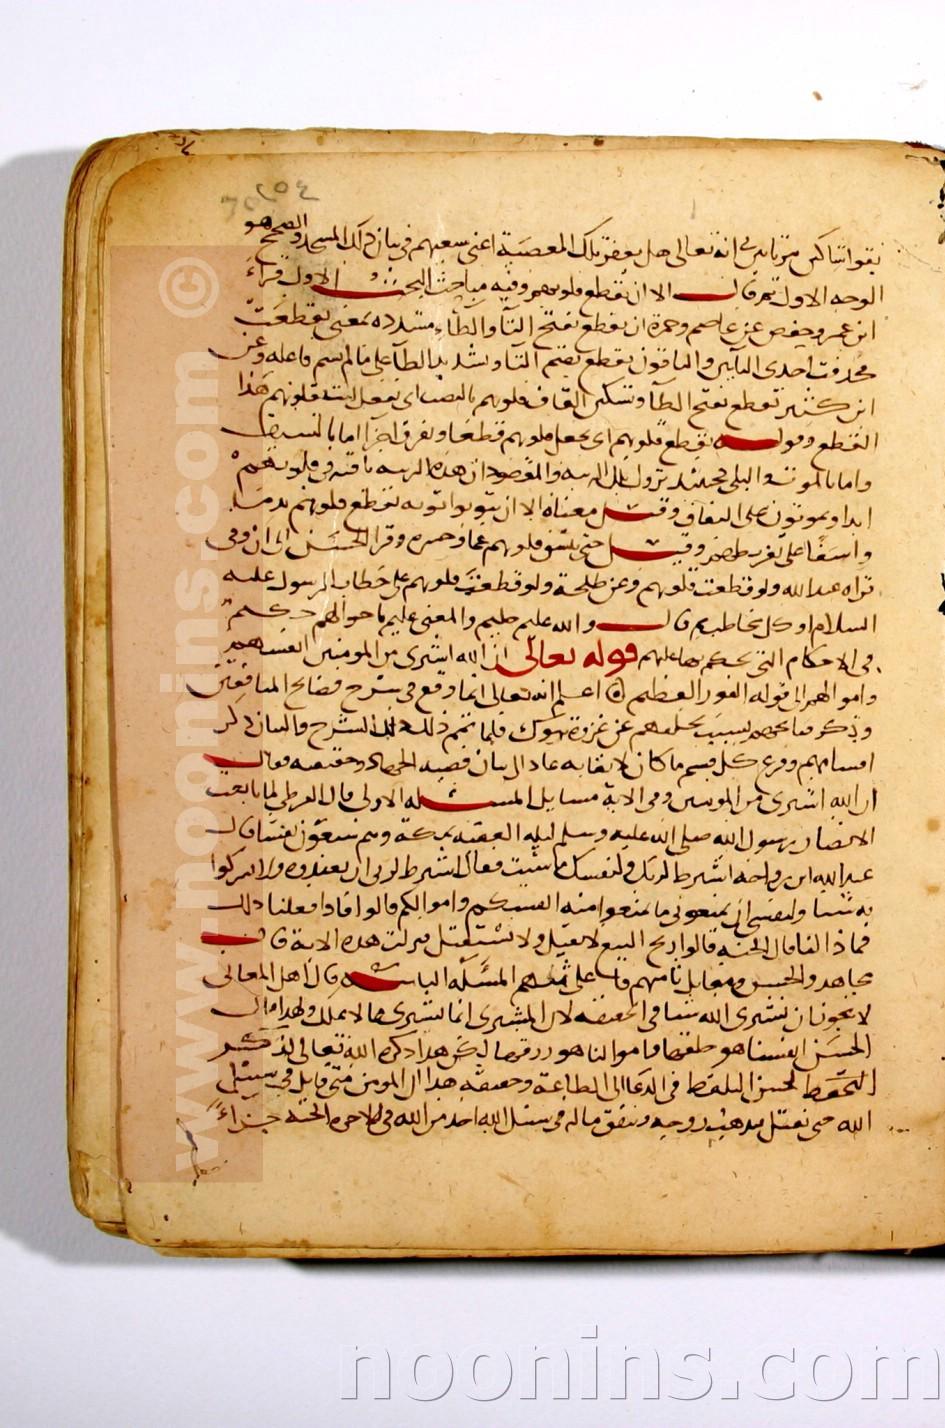 ٢٥٤
بقوا شاكين مرتابين في انه تعالى هل يغفر تلك المعصية اعنى سعيهم في بنا ذلك المسجد والصحيح هو
الوجه الاول ثم قال الا ان تقطع قلوبهم وفيه مباحث البحث الاول قراءة
ابن عمر وحفص عن عاصم وحمزة ان تقطع بفتح التآ والطآء مشددة بمعنى تتقطعت
محذفت احدى التآيين والباقون تقطع بضم التآ وتشديد الطآ على ما لم يسم فاعله وعن
ابن كثير تقطع بفتح الطآ وتسكين القاف قلوبهم بالنصب اى تفعل انت بقلوبهم هذا
القطع وقوله تقطع قلوبهم اى تجعل قلوبهم قطعا وتفرق اجزآ اما بالسيف
واما بالموت والبلى فحينئذ تزول تلك الريبة والمقصود ان هذه الريبة باقية في قلوبهم
ابدا ويموتون على النفاق وقيل معناه الا ان يتوبوا توبة تتقطع قلوبهم بدما
واسفا على تفريطهم وقيل حتى تنشق قلوبهم غما وحسرة وقرا الحسن الى ان وفى
قراة عبد الله ولو قطعت قلوبهم وعن طلحة ولو قطعت قلوبهم على خطاب الرسول عليه
السلام او كل مخاطب ثم قال والله عليم حكيم والمعنى عليم باحوالهم حكيم
في الاحكام التى يحكم بها عليهم قوله تعالى ان الله اشترى من المومنين انفسهم
واموالهم الى قوله الفوز العظيم اعلم انه تعالى لما وقع في شرح فضايح المنافقين
وذكر قبايحهم بسبب تخلفهم عن غزوة تبوك فلما تمم ذلك الشرح والبيان ذكر
اقسامهم وفرع كل قسم ما كان لايقا به عاد الى بيان فضيلة الجهاد وحقيقته فقال
ان الله اشترى من المومنين وفى الاية مسايل المسئلة الاولى قال القرطى لما بايعت
الانصار رسول الله صلى الله عليه وسلم ليلة العقبة بمكة وهم سبعون نفسا قال
عبد الله ابن رواحة اشترط لربك ولنفسك ما شيت فقال اشترط لربى ان تعبدوه ولا تشركوا
به شيا ولنفسى ان تمنعونى ما تمنعوا منه انفسكم واموالكم قالوا فاذا فعلنا ذلك
فما ذا لنا قال الجنة قالوا ربح البيع لا نقيل ولا نستقيل فنزلت هذه الاية قال
مجاهد والحسن ومقاتل ثامنهم فاغلى ثمنهم المسئلة الثانية قال اهل المعانى
لا يجوز ان يشترى الله شيا في الحقيقة لان المشترى انما يشترى ما لا يملك ولهذا قال
الحسن انفسنا هو خلقها واموالنا هو رزقها لكن هذا ذكره الله تعالى لذكر
التحفظ لحسن التلطف في الدعا الى الطاعة وحقيقة هذا ان المومن متى قاتل في سبيل
الله حتى يقتل فتذهب روحه وينفق ماله في سبيل الله اخذ من الله في الاخرة الجنة جزاء
www.noonins.com ©
noonins.com